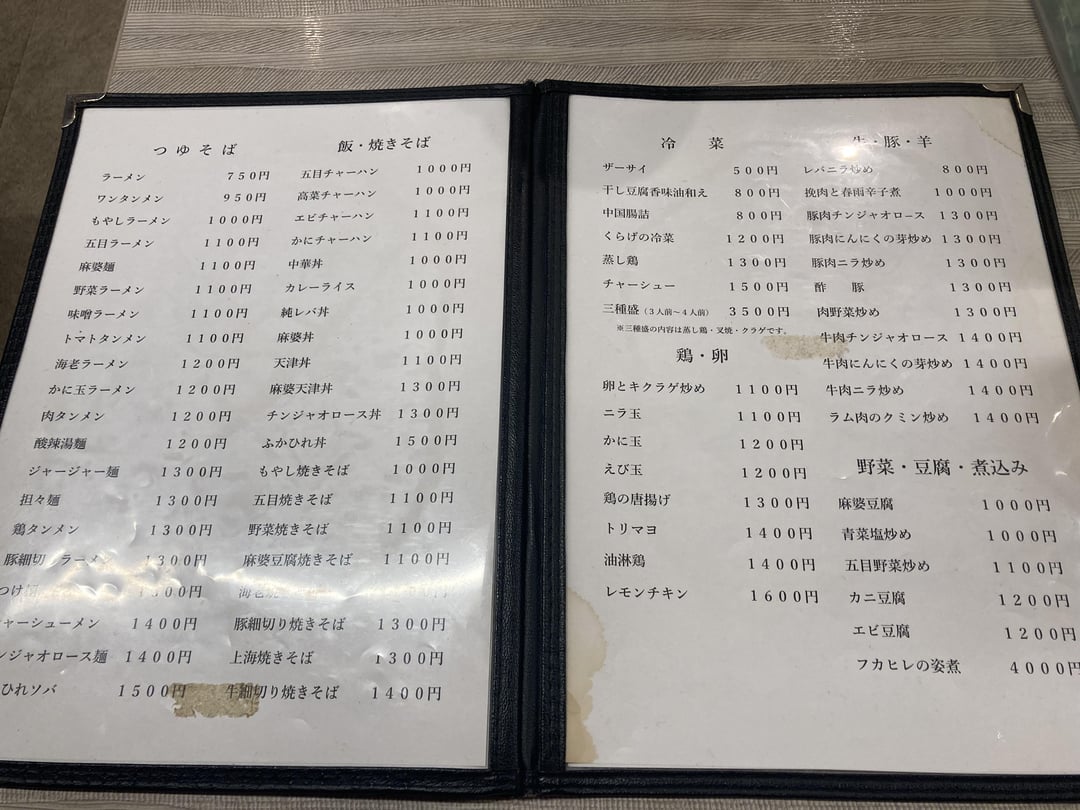 つゆそば
ラーメン 750円
ワンタンメン 950円
もやしラーメン 1000円
五目ラーメン 1100円
麻婆麺 1100円
野菜ラーメン 1100円
味噌ラーメン 1100円
トマトタンメン 1100円
海老ラーメン 1200円
かに玉ラーメン 1200円
肉タンメン 1200円
酸辣湯麺 1200円
ジャージャー麺 1300円
担々麺 1300円
鶏タンメン 1300円
豚細切 ラーメン 1300円
つけ
ャーシューメン 1400円
ンジャオロース麺 1400円
ひれソバ 1500円
飯・焼きそば
五目チャーハン 1000円
高菜チャーハン 1000円
エビチャーハン 1100円
かにチャーハン 1100円
中華丼 1000円
カレーライス 1000円
純レバ丼 1000円
麻婆丼 1000円
天津丼 1100円
麻婆天津丼 1300円
チンジャオロース丼 1300円
ふかひれ丼 1500円
もやし焼きそば 1000円
五目焼きそば 1100円
野菜焼きそば 1100円
麻婆豆腐焼きそば 1100円
海老焼
豚細切り焼きそば 1300円
上海焼きそば 1300円
牛細切り焼きそば 1400円
冷菜
ザーサイ 500円
干し豆腐香味油和え 800円
中国腸詰 800円
くらげの冷菜 1200円
蒸し鶏 1300円
チャーシュー 1500円
三種盛（3人前～4人前） 3500円
※三種盛の内容は蒸し鶏・叉焼・クラゲです。
鶏・卵
卵とキクラゲ炒め 1100円
ニラ玉 1100円
かに玉 1200円
えび玉 1200円
鶏の唐揚げ 1300円
トリマヨ 1400円
油淋鶏 1400円
レモンチキン 1600円
牛・豚・羊
レバニラ炒め 800円
挽肉と春雨辛子煮 1000円
豚肉チンジャオロース 1300円
豚肉にんにくの芽炒め 1300円
豚肉ニラ炒め 1300円
酢豚 1300円
肉野菜炒め 1300円
牛肉チンジャオロース 1400円
牛肉にんにくの芽炒め 1400円
牛肉ニラ炒め 1400円
ラム肉のクミン炒め 1400円
野菜・豆腐・煮込み
麻婆豆腐 1000円
青菜塩炒め 1000円
五目野菜炒め 1100円
カニ豆腐 1200円
エビ豆腐 1200円
フカヒレの姿煮 4000円